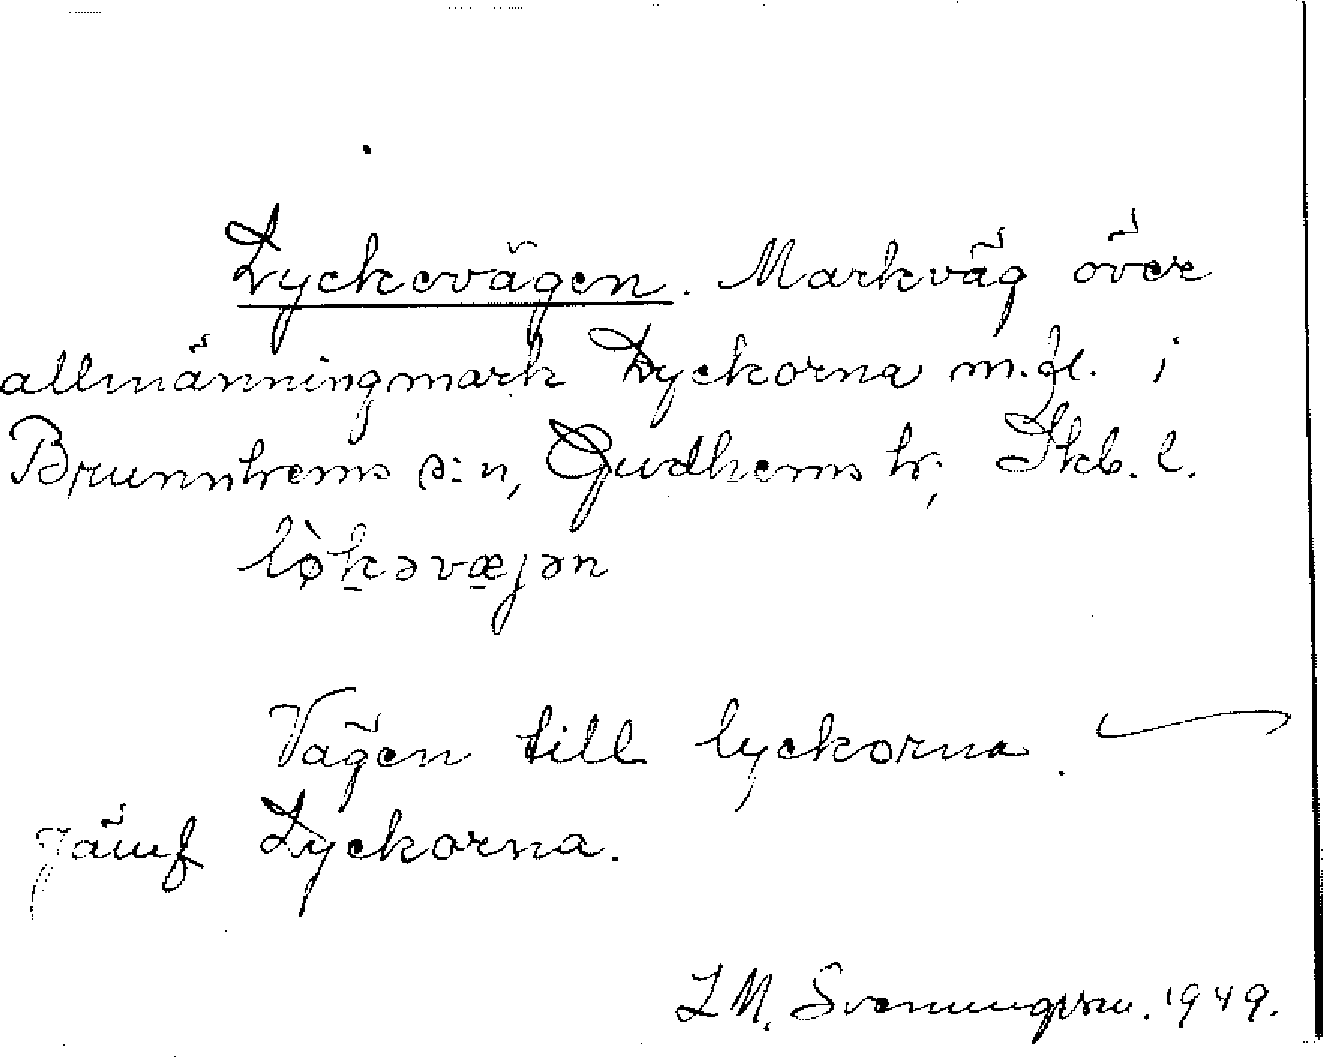 Lyckevägen. Markväg över
allmänningmark Lyckorna m.fl. i
Brunnhems s:n, Gudhems hr, Skb. l.
lø̀kəvæjən
Vägen till lyckorna.
jämf Lyckorna.
L M. Svenungsson. 1949.